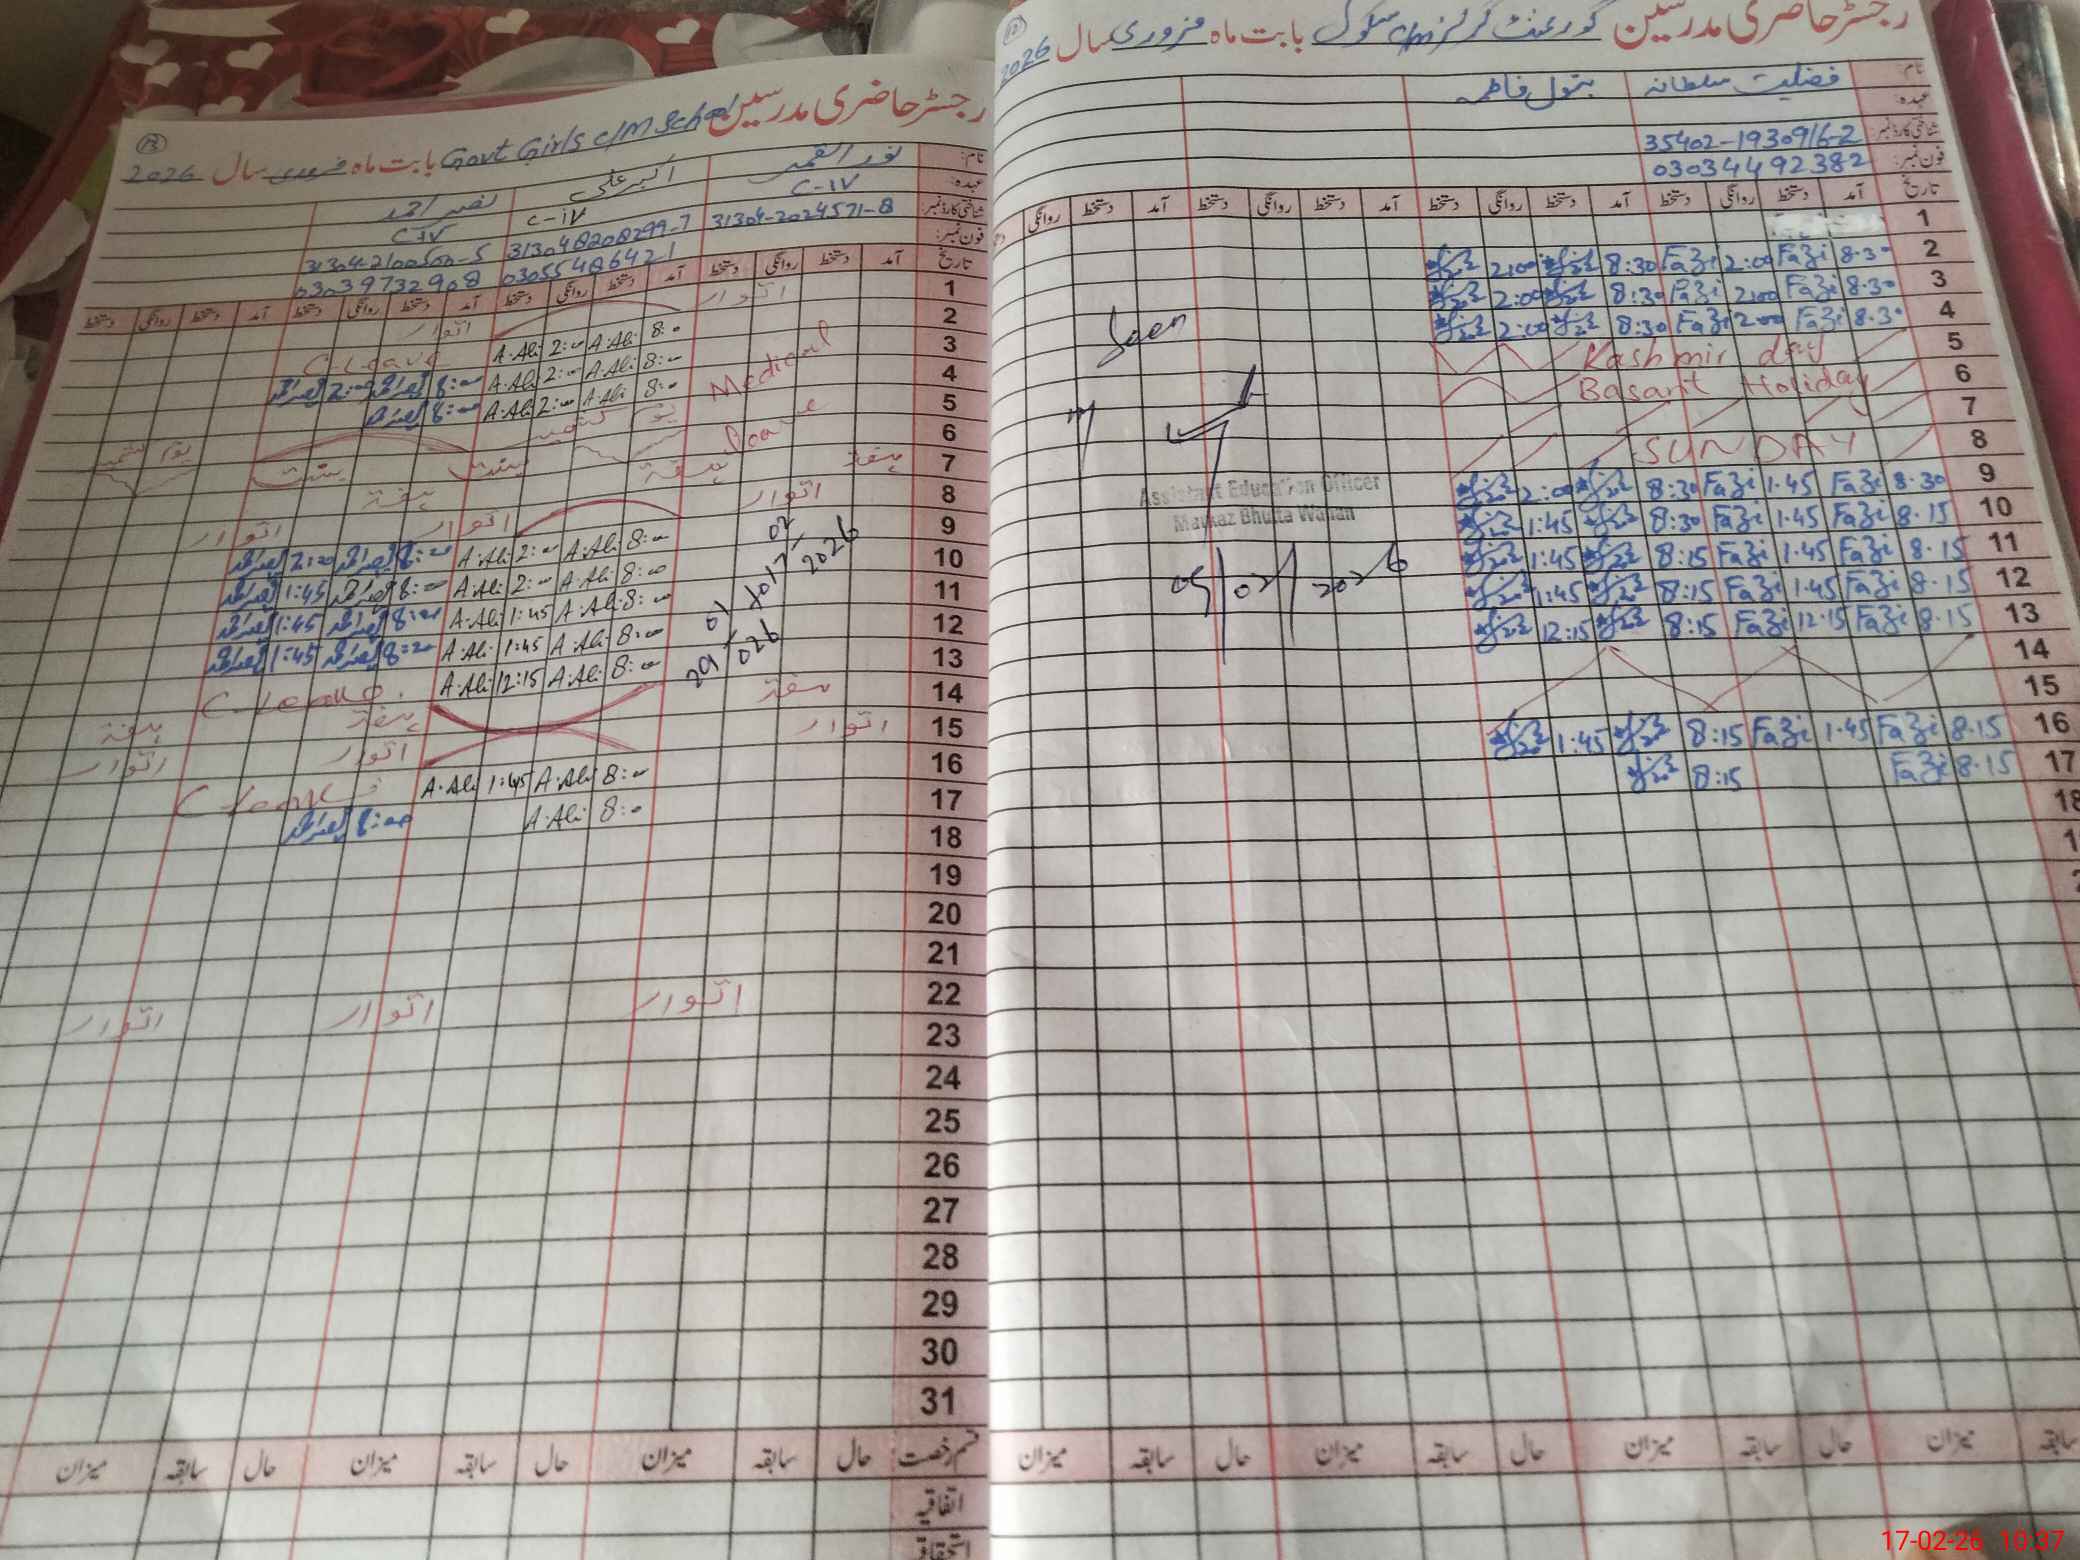 رجسٹر حاضری مدرسین گورنمنٹ گرلز c/m سکول بابت ماہ فروری سال 2026
نام: فضلیت سلطانہ بتول فاطمہ
عہدہ:
شناختی کارڈ نمبر: 35402-1930916-2
فون نمبر: 03034492382
تاریخ آمد دستخط روانگی دستخط آمد دستخط روانگی دستخط آمد دستخط روانگی دستخط آمد دستخط روانگی
1
2 8.30 Fazi 2:00 Fazi 8:30 2:00
3 8.30 Fazi 2:00 Fazi 8:30 2:00
4 8.30 Fazi 2:00 Fazi 8:30 2:00
5 Kashmir day
6 Basant Holiday
7
8 SUNDAY
9 8.30 Fazi 1.45 Fazi 8:30 2:00
10 8.15 Fazi 1.45 Fazi 8:30 1:45
11 8.15 Fazi 1.45 Fazi 8:15 1:45
12 8.15 Fazi 1.45 Fazi 8:15 1:45
13 8.15 Fazi 12.15 Fazi 8:15 12:15
14
15
16 8.15 Fazi 1.45 Fazi 8:15 1:45
17 8.15 Fazi 8:15
18
Seen
Assistant Education Officer
Markaz Bhutta Wahan
05/02/2026
میزان حال سابقہ میزان حال سابقہ میزان حال سابقہ میزان
رجسٹر حاضری مدرسین Govt Girls c/M School بابت ماہ فروری سال 2026
نام: نور القمر اکبر علی نصیر احمد
عہدہ: C-IV C-IV C-IV
شناختی کارڈ نمبر: 31304-2024571-8 313048208299-7 31304-2100500-5
فون نمبر: 03055486421 03039732908
تاریخ آمد دستخط روانگی دستخط آمد دستخط روانگی دستخط آمد دستخط روانگی دستخط آمد دستخط روانگی دستخط
1 اتوار اتوار
2 8:00 A.Ali 2:00 A.Ali C-Leave
3 8:00 A.Ali 2:00 A.Ali 8:00 2:00
4 8:00 A.Ali 2:00 A.Ali 8:00
Medical leave
5 یوم کشمیر یوم کشمیر
6 بسنت بسنت
7 ہفتہ ہفتہ ہفتہ
8 اتوار اتوار اتوار
9 8:00 A.Ali 2:00 A.Ali 8:00 2:00
10 8:00 A.Ali 2:00 A.Ali 8:00 1:45
11 8:00 A.Ali 1:45 A.Ali 8:00 1:45
12 8:00 A.Ali 1:45 A.Ali 8:00 1:45
13 8:00 A.Ali 12:15 A.Ali C-Leave
14 ہفتہ ہفتہ ہفتہ
15 اتوار اتوار اتوار
16 8:00 A.Ali 1:45 A.Ali C-leave
17 8:00 A.Ali 8:00
18
19
20
21
22 اتوار اتوار اتوار
23
24
25
26
27
28
29
30
31
قسم رخصت حال سابقہ میزان حال سابقہ میزان حال سابقہ میزان
اتفاقیہ
استحقاق
17-02-26 10:37